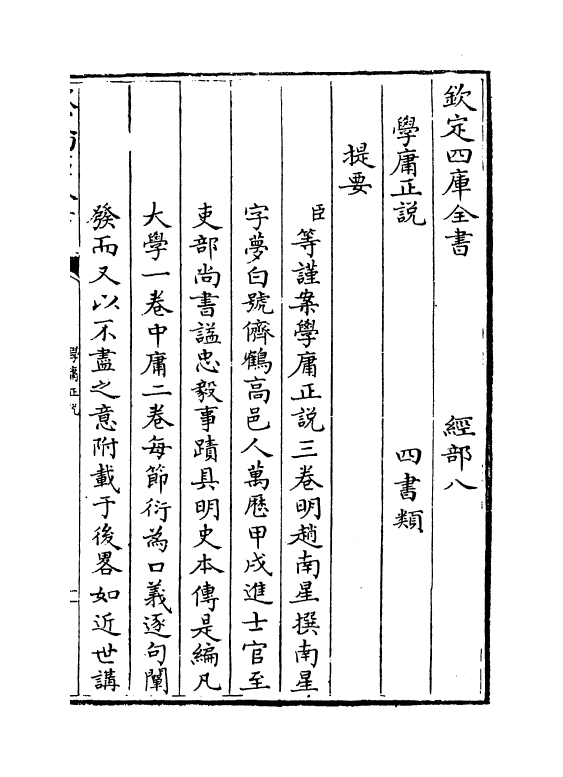 欽定四庫全書　經部八
學庸正説　四書類
提要
臣等謹案學庸正説三卷明趙南星撰南星
字夢白號儕鶴高邑人萬厯甲戌進士官至
吏部尚書諡忠毅事蹟具明史本傳是編凡
大學一卷中庸二卷每節衍為口義逐句闡
發而又以不盡之意附載于後畧如近世講
學庸正説